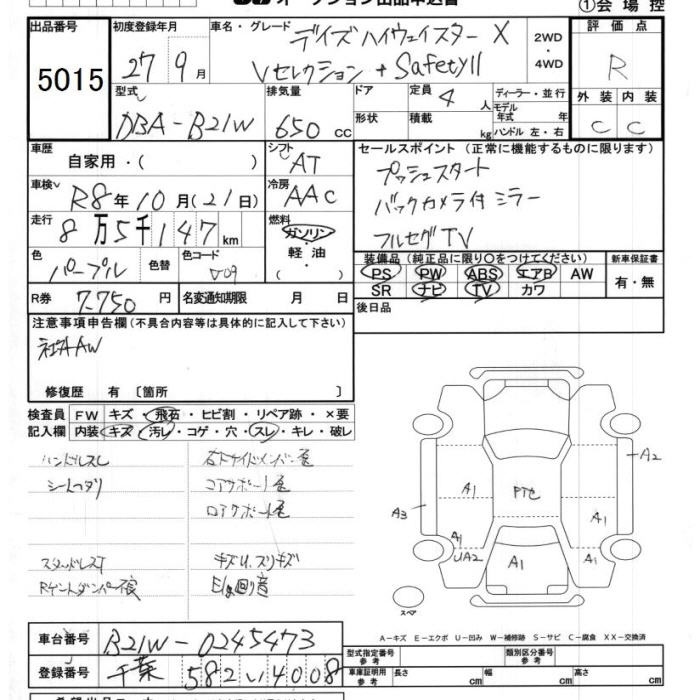 オークション出品申込書
①会場控
出品番号
5015
初度登録年月
27 9月
車名・グレード
デイズハイウェイスター X
Vセレクション + SafetyⅡ
2WD
・
4WD
評価点
R
型式
DBA-B21W
排気量
650 cc
ドア
形状
定員 4 人
積載 kg
ディーラー・並行
モデル
年式 年
ハンドル 左・右
外装 内装
C C
車歴
自家用・(
シフト
AT
セールスポイント (正常に機能するものに限ります)
プッシュスタート
バックカメラ付ミラー
フルセグTV
車検
R8年10月(21日)
冷房
AAC
走行
8万5千147km
燃料
ガソリン
・
軽油
・
( )
色
パープル
色替
色コード
装備品 (純正品に限り○をつけてください)
PS PW ABS エアB AW
SR ナビ TV カワ
新車保証書
有・無
R券 7,750円
名変通知期限 月 日
後日品
注意事項申告欄 (不具合内容等は具体的に記入して下さい)
社外AW
修復歴 有 〔箇所 〕
検査員
記入欄
FW キズ・飛石・ヒビ割・リペア跡・×要
内装 キズ・汚レ・コゲ・穴・スレ・キレ・破レ
ハンドルスレ
シートヘタリ
コアサポート
ロアサポート
スタッドレス
キズU、スリキズ
Rゲートダンパー不良
Eg回り音
A1
A1
UA2
A3
PTセ
A1
A2
A1
A1
スペア
A-キズ E-エクボ U-凹み W-補修跡 S-サビ C-腐食 XX-交換済
車台番号
B21W-0245473
登録番号
千葉 582 い 4008
型式指定番号
参考
類別区分番号
参考
車庫証明用
参考
長さ cm
幅 cm
高さ cm